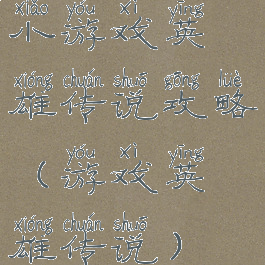 xiǎo yóu xì yīng
小游戏英
xióng chuán shuō gōng lüè
雄传说攻略
yóu xì yīng
（游戏英
xióng chuán shuō
雄传说）